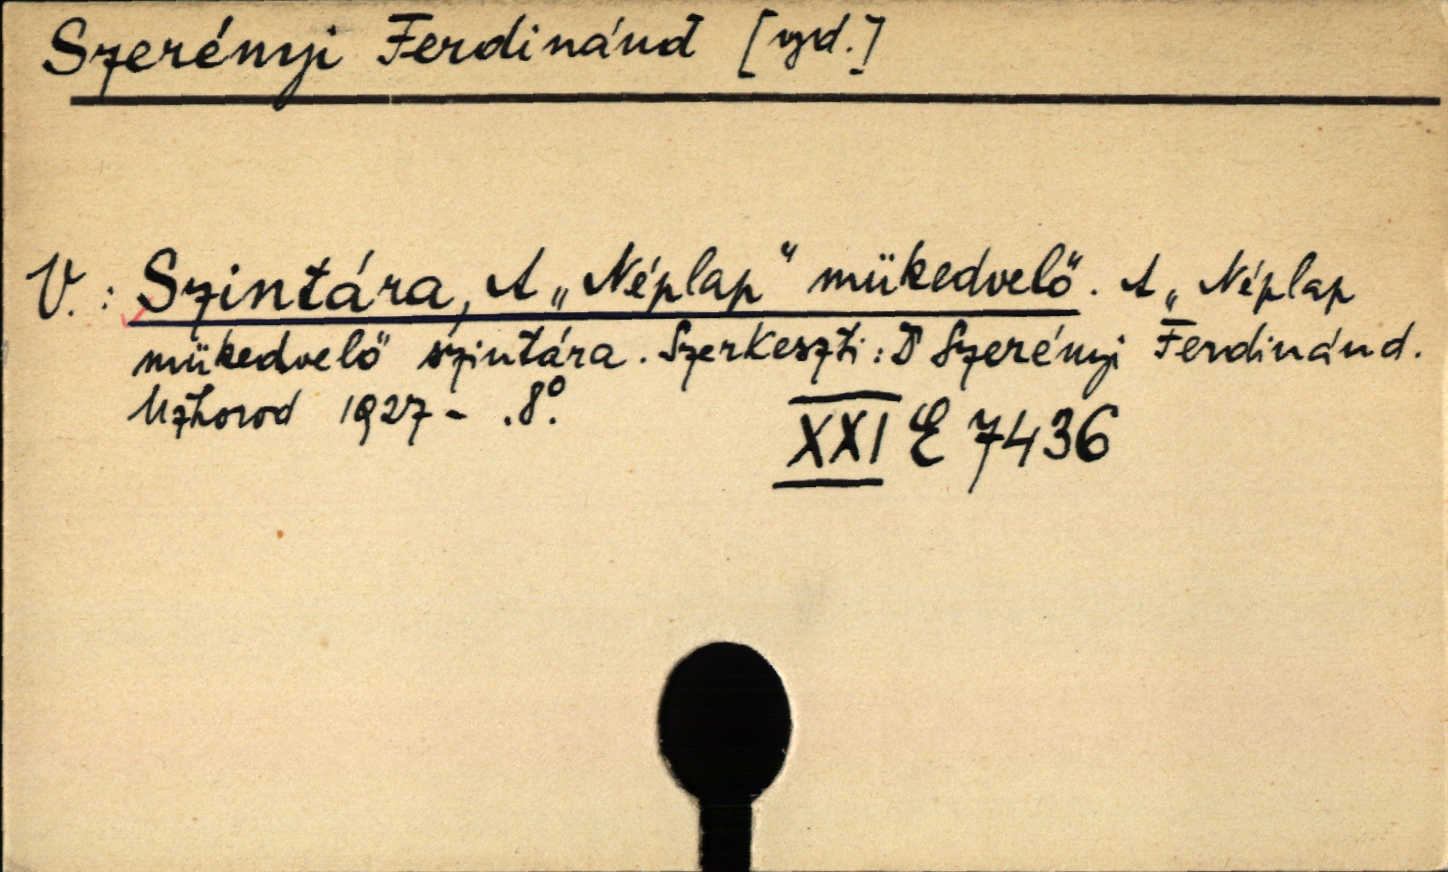 Szerényi Ferdinánd [vyd.]
V.: Szintára, A „Néplap" mükedvelő. A „Néplap
mükedvelő szintára. Szerkeszti: Dr Szerényi Ferdinánd.
Užhorod 1927 - .8°.
XXI E 7436